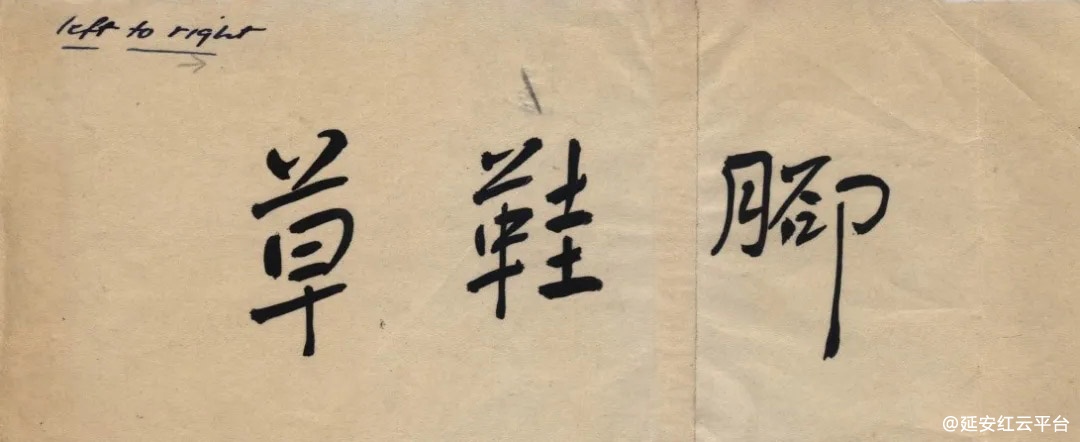 left to right
草鞋腳
@延安红云平台